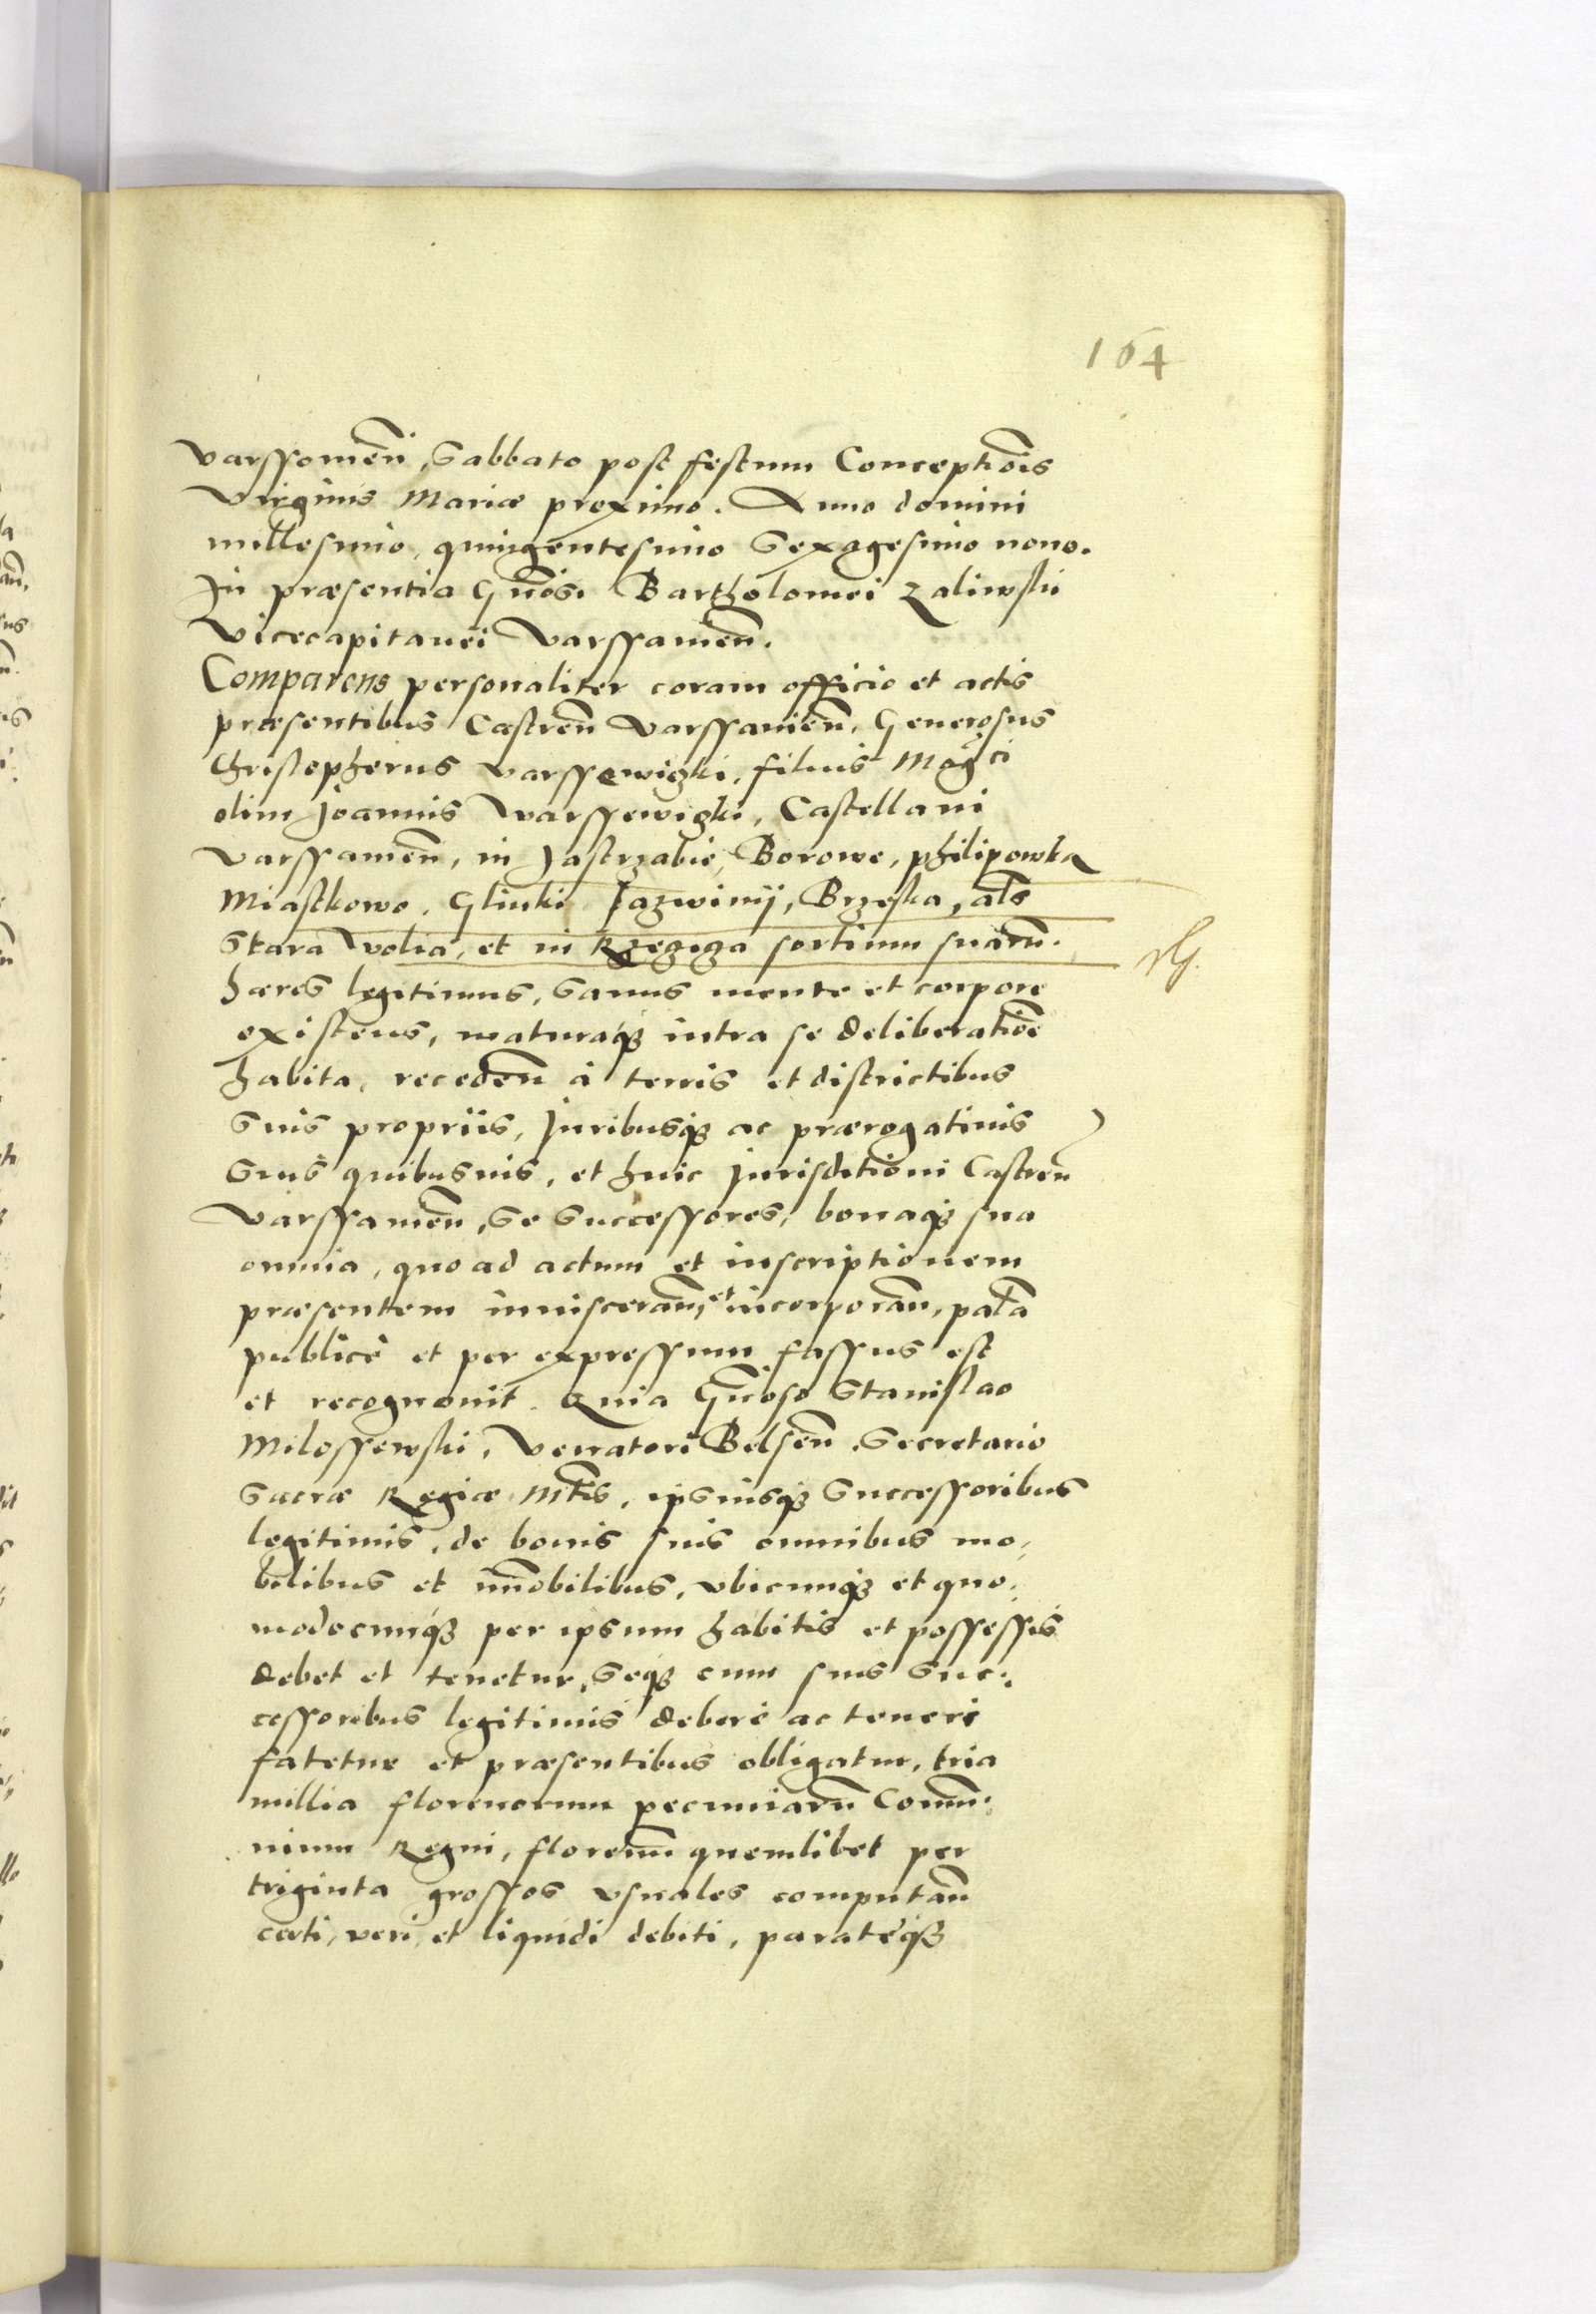 164
Varssovien̄, Sabbato post festum Conceptiōis
Virginis Mariæ proximo. Anno domini
millesimo, quingentesimo Sexagesimo nono.
In præsentia Gn̄osi. Bartholomei Zaliwski
Vicecapitanei Varssavien̄.
Comparens personaliter coram officio et actis
præsentibus Castren̄ Varssavien̄, Generosus
Christopherus Varssewiczki, filius Mag̃ci
olim Joannis Warssewiczki, Castellani
Varssavien̄, in Jastrzabie, Borowe, philipowka
Miastkowo, Glinki Jazwinij, Brzeska, al̄s
Stara Wolia, et in Rzęgzga sortium suarū.
hæres legitimus, Sanus mente et corpore
existens, maturaq3 intra se deliberatiōe
habita, receden̄ à terris et districtibus
Suis propriis, Juribusq3 ac prærogativis
Suis quibusvis, et huic Jurisditioni Castren̄
Varssavien̄, Se Successores, bonaq3 sua
omnia, quo ad actum et inscriptionem
præsentem inviscerān, et incorporān, palā
publicè et per expressum fassus est
et recognovit. Quia Gn̄oso Stanislao
Milossewski, Venatori Belsen̄ Secretario
Sacræ Regiæ Mt̄is, ipsiusq3 Successoribus
legitimis, de bonis suis omnibus mo,
bilibus et im̄obilibus, ubicunq3 et quo,
modocunq3 per ipsum habitis et possessis
debet et tenetur, Seq3 cum suis Suc,
cessoribus legitimis debere ac teneri
fatetur et præsentibus obligatur, tria
millia florenorum pecuniarū Com̄u,
nium Regni, florenū quemlibet per
triginta grossos usuales computān
certi, veri, et liquidi debiti, paratèq3